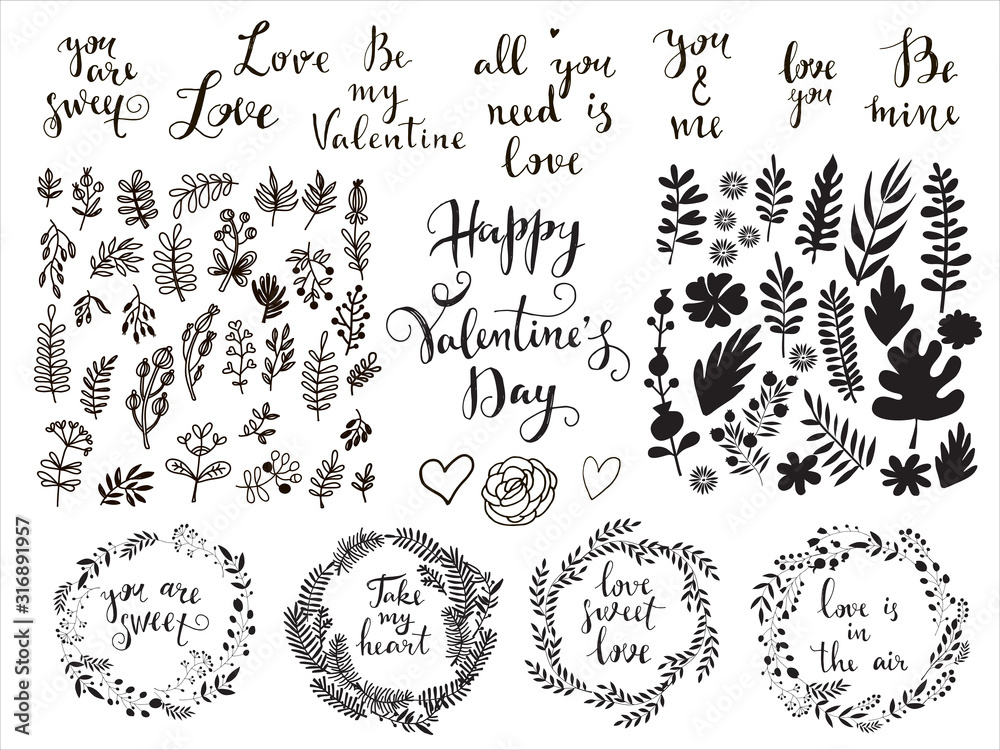 you
are
sweet
Love
Love
Be
my
Valentine
all you
need is
love
you
&
me
love
you
Be
mine
Happy
Valentine's
Day
you are
sweet
Take
my
heart
love
sweet
love
love is
in
the air
Adobe Stock | #316891957